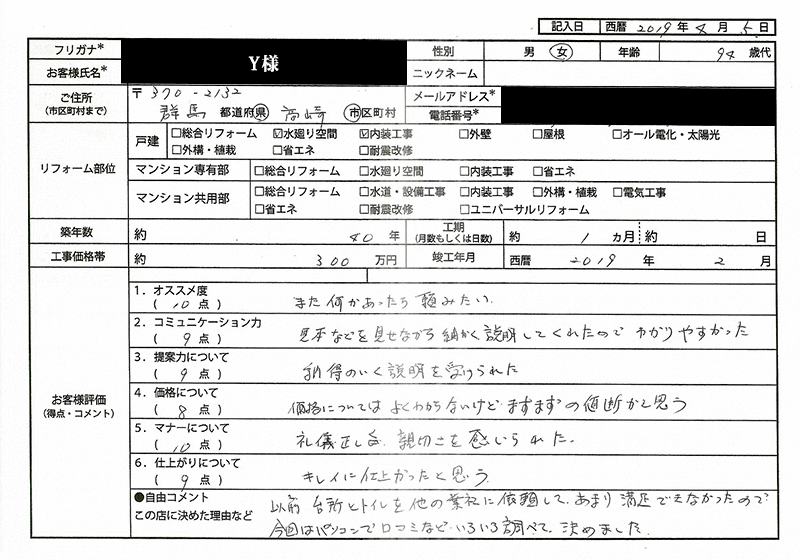 記入日 西暦 2019 年 4 月 5 日
フリガナ* Y様 性別 男 女 年齢 94 歳代
お客様氏名* ニックネーム
ご住所 (市区町村まで) 〒370-2132 メールアドレス*
群馬 都道府県 高崎 市区町村 電話番号*
リフォーム部位
戸建 □総合リフォーム ☑水廻り空間 ☑内装工事 □外壁 □屋根 □オール電化・太陽光
□外構・植栽 □省エネ □耐震改修
マンション専有部 □総合リフォーム □水廻り空間 □内装工事 □省エネ
マンション共用部 □総合リフォーム □水道・設備工事 □内装工事 □外構・植栽 □電気工事
□省エネ □耐震改修 □ユニバーサルリフォーム
築年数 約 40 年 工期 (月数もしくは日数) 約 1 ヵ月 約 日
工事価格帯 約 300 万円 竣工年月 西暦 2019 年 2 月
お客様評価
(得点・コメント)
1. オススメ度
( 10 点 ) また何かあったら頼みたい.
2. コミュニケーション力
( 9 点 ) 見本などを見せながら細かく説明してくれたので わかりやすかった
3. 提案力について
( 9 点 ) 納得のいく説明を受けられた
4. 価格について
( 8 点 ) 価格についてはよくわからないけど ますますの値断かと思う
5. マナーについて
( 10 点 ) 礼儀正しく、親切さを感じられた.
6. 仕上がりについて
( 9 点 ) キレイに仕上がったと思う
●自由コメント
この店に決めた理由など
以前 台所とトイレを他の業社に依頼して、あまり満足できなかったので
今回はパソコンで口コミなどいろいろ調べて、決めました.